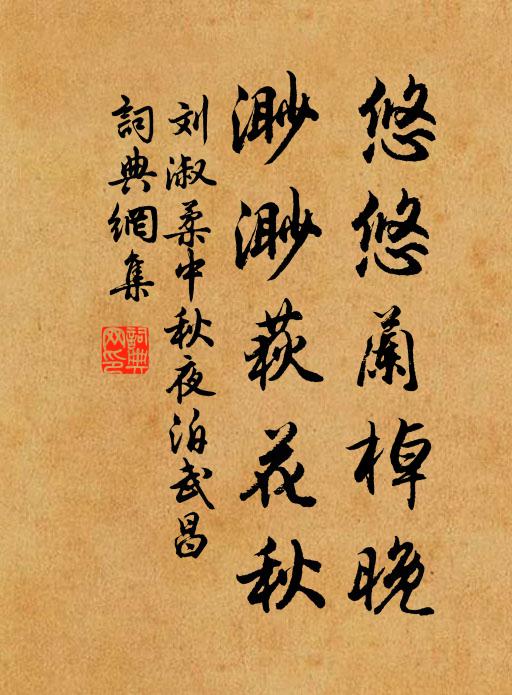 悠悠蘭棹晚
渺渺荻花秋
刘淑柔中秋夜泊武昌
詞典網集
詞典
网印